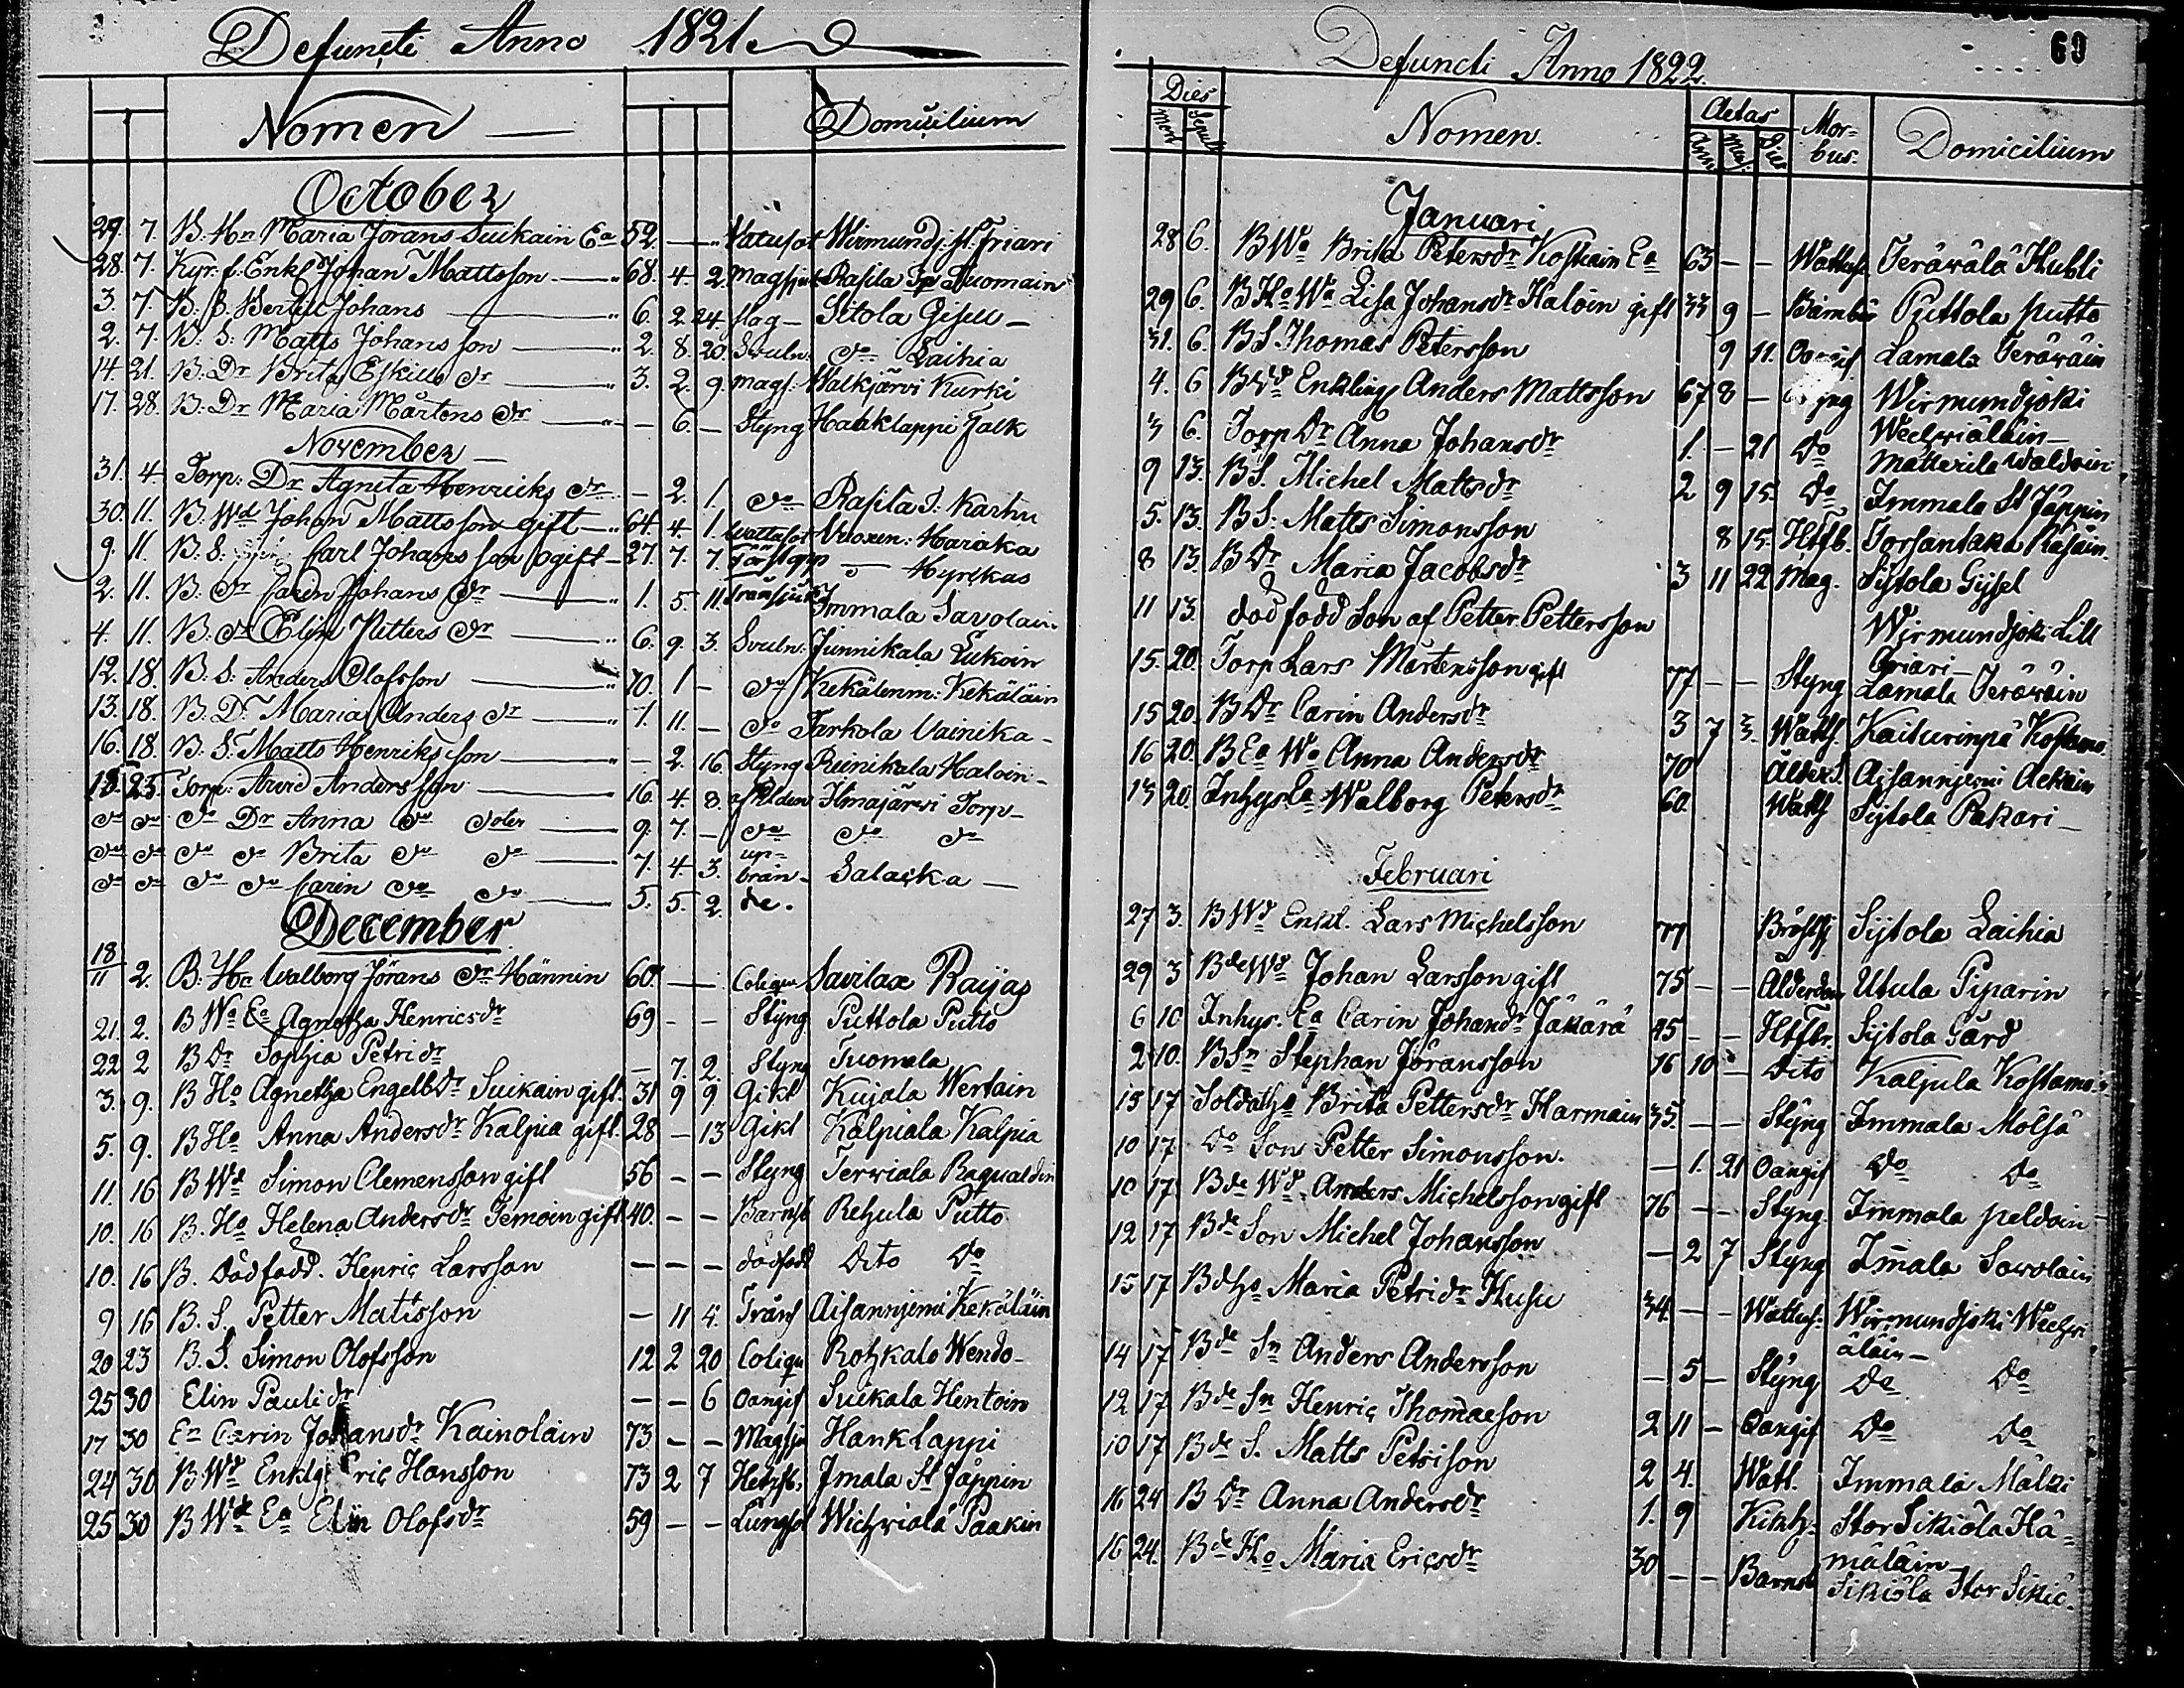 Defuncti Anno 1821
Nomen Domicilium
October
29. 7. B. Hn Maria Jörans Suikain Ea 52. Vatusot Wirmundj. fl. Friari
28. 7. Kyr. f. Enkl Johan Mattsson 68. 4. 2. Magsjuk Rasila
3. 7. B. S. Bertill Johans 6. 2. 24 slag Sitola
2. 7. B. S. Matts Johansson 2. 8. 20. Svuln. do Laihia
14. 21. B. Dr Brita Eskills dr 3. 2. 9. mags. Walkjärvi Kurki
17. 28. B. Dr Maria Mårtens dr — 6. — Styng Haukklappi Falk
November
31. 4. Torp. Dr Agneta Henricks dr — 2. 1. do Rasila S. Karhu
30. 11. B. Wd Johan Mattsson gift 64. 4. 1. Wattusot Vuoxen: Haraka
9. 11. B. S. Carl Johansson ogift 27. 7. 7. Hyrckas
2. 11. B. dr Caren Johans dr 1. 5. 11 Immala Savolain
4. 11. B. dr Elin Petters dr 6. 9. 3. Svuln: Junnikala Lukoin
12. 18. B. S. Anders Olofsson 10. 1 — do Kekälenm: Kekäläin
13. 18. B. Dr Maria Anders dr 1. 11. — do Tarkola Vainika
16. 18. B. S. Matts Henriksson — 2. 16. Styng Reinikala Haloin
18. 25. Torp. Arvid Andersson 16. 4. 8. af Elden Ilmajärvi Torp
do do do Dr Anna do doter 9. 7. — do do do
do do do do Brita do do 7. 4. 3. up= brän- Salacka
do do do do Carin do do 5. 5. 2. de.
December
18/11 2. B. Ha Walborg Jörans dr Hännin 60. — Colique Savilax Raijas
21. 2. B Wa Ea Agnetha Henricsdr 69 — — Styng Puttola Putto
22 2 B Dr Sophia Petri dr — 7. 2 Styng Tuomala
3. 9. B Ho Agnetha Engelbdr Suikain gift. 31 9 9 Gikt Kujala Wertain
5. 9. B Ho Anna Andersdr Kalpia gift 28 — 13 Gikt Kälpiala Kalpia
11. 16 B Wd Simon Clemensson gift 56 — — Styng Terwiala Raqualdin
10. 16 B. Ho Helena Andersdr Temoin gift 40. — — Barnsb Rehula Putto
10. 16 B. Dödfödd. Henric Larsson — — — dödfödd Dito Do
9 16 B. S. Petter Mattsson — 11 4. Trånf Aisannjemi Kekäläin
20 23 B. S. Simon Olofsson 12 2 20 Colique Rotzkalo Wendo
25 30 Elin Pauli dr — — 6 Oangif Suikala Hentoin
17 30 Ea Carin Johansdr Kainolain 73 — — Magsju Hanklappi
24 30 B Wd Enklg Eric Hansson 73 2 7 Hetsfb. Imala St Jäppin
25 30 B Wd Ea Elin Olofsdr 59 — — Lungsot Wichwiälä Paakin
Defuncti Anno 1822.
69
Dies Nomen. Aetas Mor= bus. Domicilium
Mort Sepult Ann Men Dies
Januari
28 6. B Wa Brita Petersdr Kostiain Ea 63 — — Wattuso Teräwälä Hubli
29 6. B Ho Wa Lisa Johansdr Haloin gift 33 9 — Barnsb Puttola putto
31. 6. B S Thomas Petersson 9 11. Oangif Lamala Teräwäin
4. 6 B Wd Enkling Anders Mattsson 67 8 — Wirmundjoki
Weclwiäläin
3 6. Torp Dr Anna Johansdr 1. — 21 Do Matterila Waldoin
9 13. B S. Michel Mattsdr 2 9 15. Do Immala St Jäppin
5. 13. B S: Matts Simonsson 8 15. Htfb. Torsantaka Rasain
8 13. B Dr Maria Jacobsdr 3 11 22 Mag. Sijtola Gijsel
11 13. död född Son af Petter Pettersson Wirmundjoki Lill
Griari
15. 20. Torp Lars Mårtensson gift 77 — — Styng Lamala Teräwäin
15 20. B Dr Carin Andersdr 3 7 3. Watts Kaiturinpä Kostamo
16 20. B Ea Wa Anna Andersdr 70 Ålderd. Aisannjemi Ackain
13 20. Inhys Ea Walborg Petersdr 60. Watts Sijtola Pakari
Februari
27 3. B Wd Enkl. Lars Michelsson 77 Bröstsj Sijtola Laihia
29 3 Bde Wd Johan Larsson gift 75 — — Alderdom Utula Piparin
6 10 Inhys. Ea Carin Johandr Jäkärä 45 — — Htfbr. Sijtola Gård
2 10. B Sn Stephan Jöransson 76 10 — Dito Kaljula Kostamo
15 17 Soldatho Brita Pettersdr Harmain 35. — — Styng Immala Mölsä
10 17 Do Son Petter Simonsson. — 1. 21 Oangif Do Do
10 17. Bde Wd Anders Michelsson gift 76 — — Styng. Immala peldoin
12 17 Bde Son Michel Johansson — 2 7 Styng Imala Sawolain
15 17 Bd ho Maria Petri dr Husu 34. — — Wattus. Wirmundjoki Weclwi
äläin
14 17 Bde Sn Anders Andersson — 5 — Styng Do Do
12 17. Bde Sn Henric Thomaeson 2 11 — Oangif Do Do
10 17 Bde S. Matts Petrison 2 4. Watt. Immala Mälki
16 24 B Dr Anna Andersdr 1. 9 Kikh. Stor Sikiöla Hä=
mäläin
16 24. Bde Ho Maria Ericsdr 30 — — Barnsb Sikiöla Stor Sikiö.